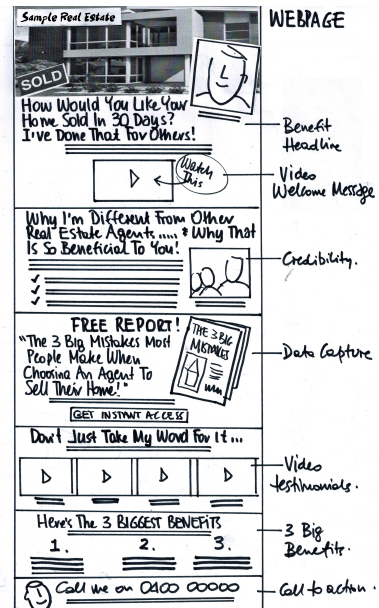 Sample Real Estate
WEBPAGE
SOLD
How Would You Like Your
Home Sold In 30 Days?
I've Done That For Others!
Benefit
Headline
Watch
This
Video
Welcome Message
Why I'm Different From Other
Real Estate Agents ..... & Why That
Is So Beneficial To You!
Credibility.
FREE REPORT!
"The 3 Big Mistakes Most
People Make When
Choosing An Agent To
Sell Their Home!"
THE 3 BIG
MISTAKES
Data Capture
GET INSTANT ACCESS
Don't Just Take My Word For It...
Video
testimonials.
Here's The 3 BIGGEST BENEFITS
1. 2. 3.
3 Big
Benefits.
Call me on 0400 00000
Call to action.